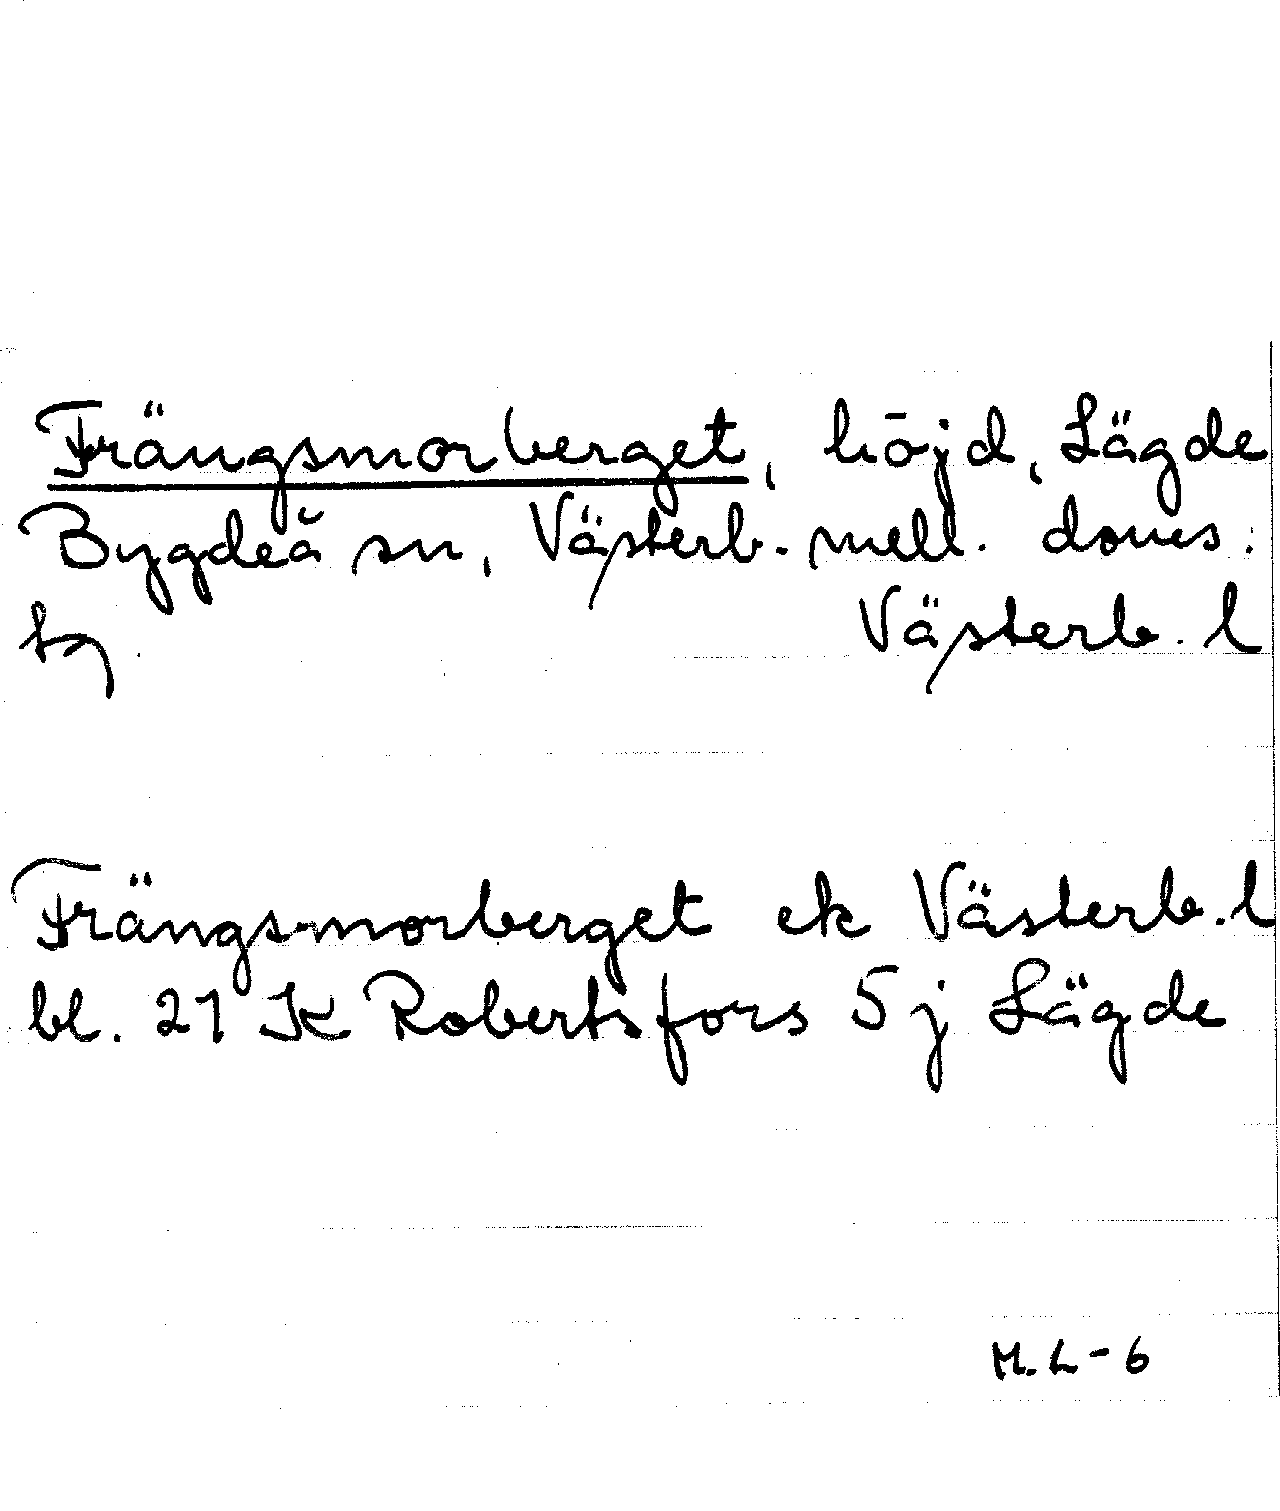 Frängsmorberget, höjd, Lägde
Bygdeå sn, Västerb. mell. doms.
tg. Västerb. l
Frängsmorberget ek Västerb. l
bl. 21 K Robertsfors 5 j Lägde
M. L-6